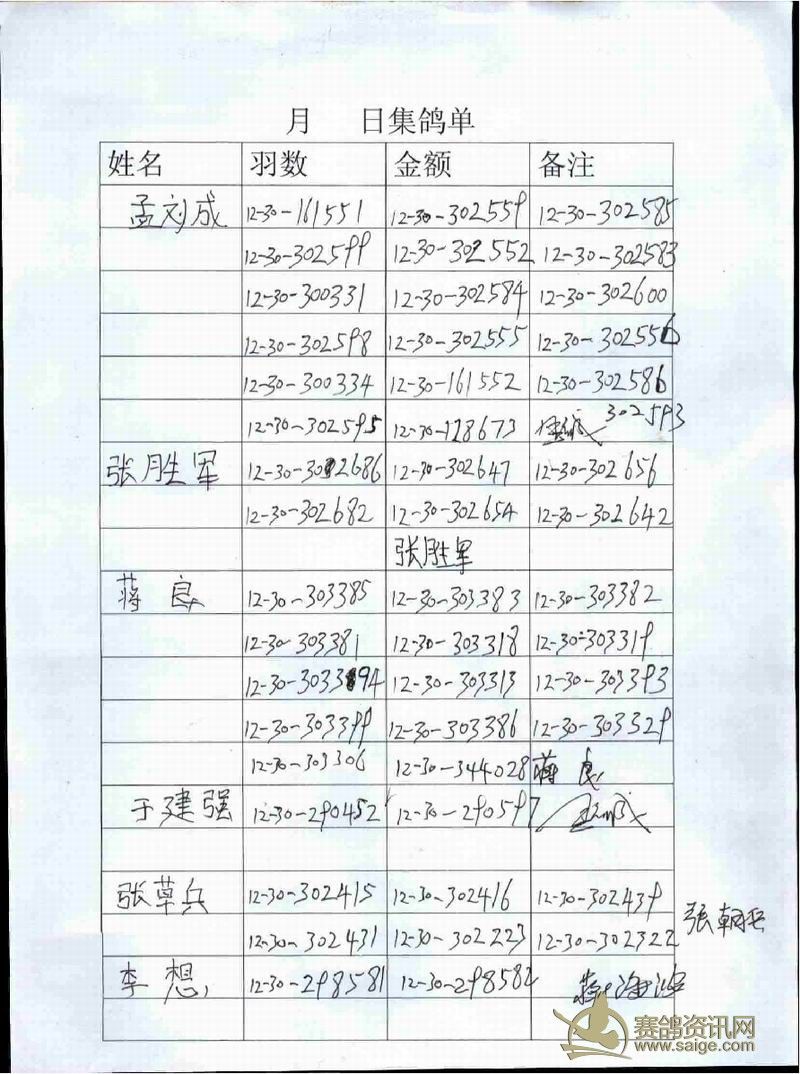 月 日集鸽单
姓名 羽数 金额 备注
孟刘成 12-30-161551 12-30-302559 12-30-302585
12-30-302599 12-30-302552 12-30-302583
12-30-300331 12-30-302584 12-30-302600
12-30-302598 12-30-302555 12-30-302556
12-30-300334 12-30-161552 12-30-302586
12-30-302595 12-30-128673 302593
张胜军 12-30-302686 12-30-302647 12-30-302656
12-30-302682 12-30-302654 12-30-302642
张胜军
蒋良 12-30-303385 12-30-303383 12-30-303382
12-30-303381 12-30-303318 12-30-303319
12-30-303394 12-30-303313 12-30-303393
12-30-303399 12-30-303386 12-30-303329
12-30-303306 12-30-344028 蒋良
于建强 12-30-290452 12-30-290597
张草兵 12-30-302415 12-30-302416 12-30-302439
12-30-302431 12-30-302223 12-30-302322 张朝兵
李想 12-30-298581 12-30-298582
赛鸽资讯网
www.saige.com